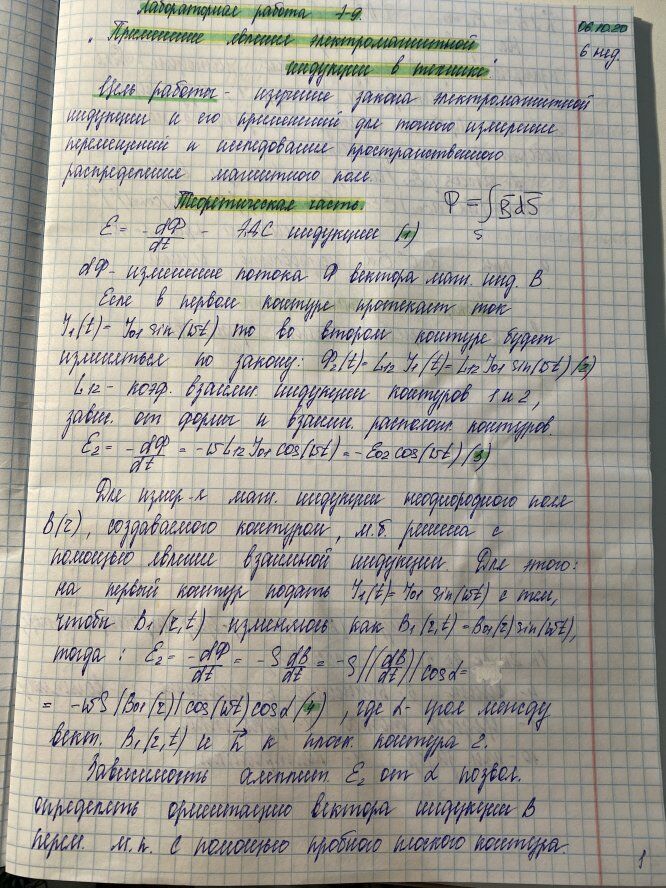 Лабораторная работа 1-9.
06.10.20
"Применение явления электромагнитной
6 нед.
индукции в технике".
Цель работы - изучение закона электромагнитной
индукции и его применений для точного измерения
перемещений и исследования пространственного
распределения магнитного поля.
Теоретическая часть.
Φ = ∫_S B̅dS̅
Ɛ = -dΦ/dt - ЭДС индукции (1)
dΦ - изменение потока Φ вектора маг. инд. B
Если в первом контуре протекает ток
I₁(t) = I₀₁ sin(ωt) то во втором контуре будет
изменяться по закону: Φ₂(t) = L₁₂ I₁(t) = L₁₂ I₀₁ sin(ωt) (2)
L₁₂ - коэф. взаимн. индукции контуров 1 и 2,
завис. от формы и взаимн. располож. контуров.
Ɛ₂ = -dΦ/dt = -ωL₁₂I₀₁cos(ωt) = -Ɛ₀₂cos(ωt) (3)
Для измер-я маг. индукции неоднородного поля
B(r), создаваемого контуром, м.б. решена с
помощью явления взаимной индукции. Для этого:
на первый контур подать I₁(t) = I₀₁ sin(ωt) с тем,
чтобы B₁(r,t) изменялось как B₁(r,t) = B₀₁(r)sin(ωt),
тогда: Ɛ₂ = -dΦ/dt = -S dB/dt = -S|(dB/dt)|cosα =
= -ωS|B₀₁(r)|cos(ωt)cosα (4), где α - угол между
вект. B₁(r,t) и n⃗ к плоск. контура 2.
Зависимость амплит. Ɛ₂ от α позвол.
определять ориентацию вектора индукции B
перем. м.п. с помощью пробного плоского контура.
1